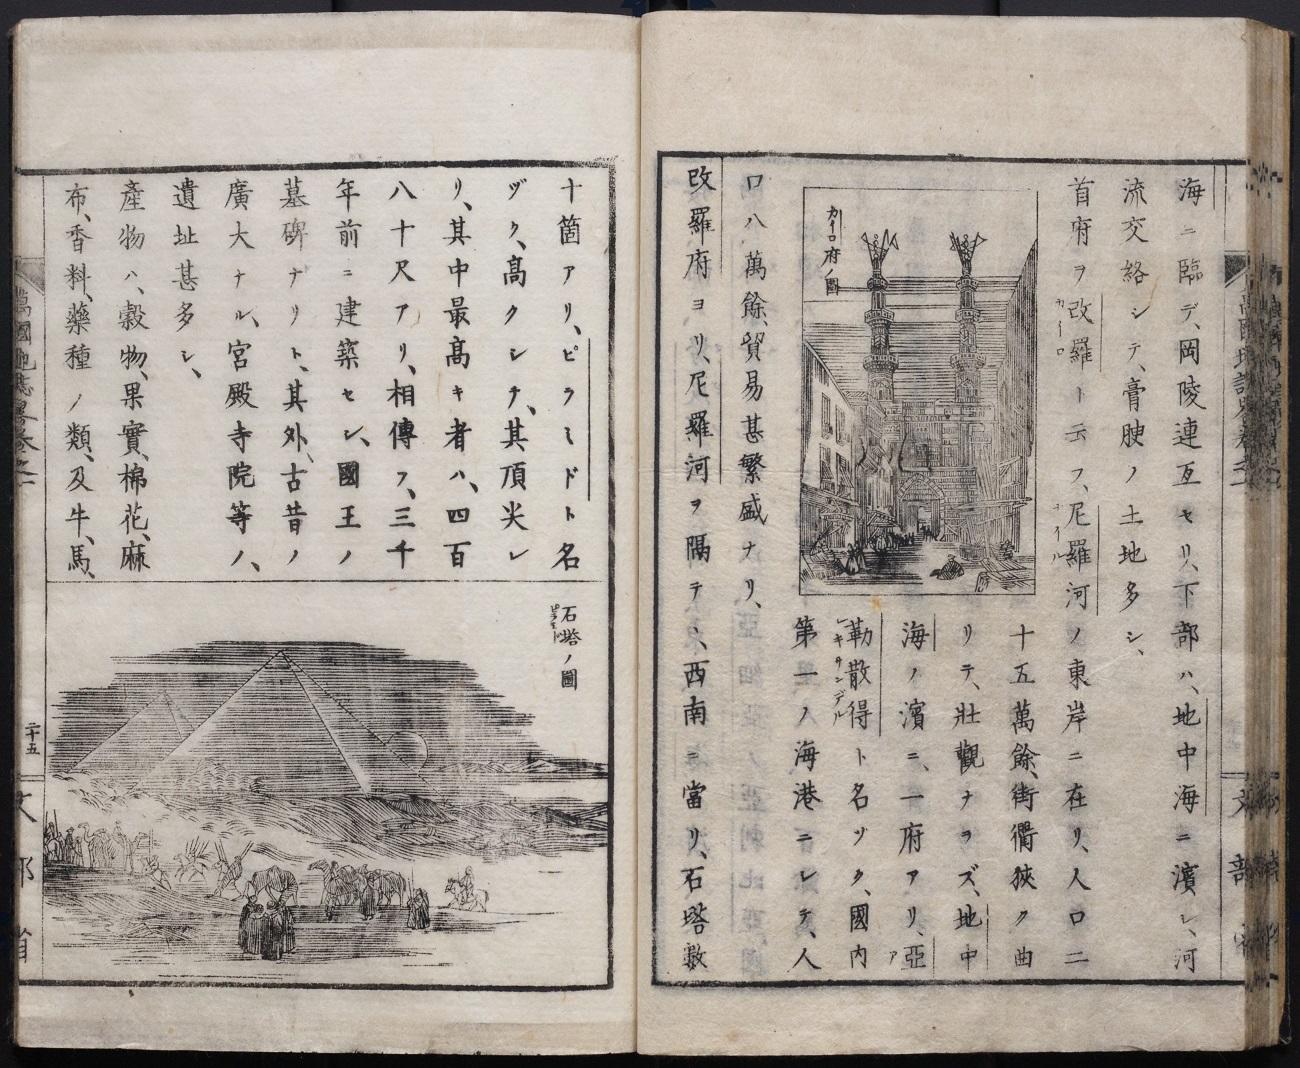 海ニ臨デ、岡陵連亙セリ、下部ハ、地中海ニ濱シ、河
流交絡シテ、膏腴ノ土地多シ、
首府ヲ改羅ト云フ、尼羅河ノ東岸ニ在リ、人口二
カーロ
ナイル
カイロ府ノ圖
十五萬餘、街衢狹ク曲
リテ、壯觀ナラズ、地中
海ノ濱ニ、一府アリ、亞
ア
勒散得ト名ヅク、國内
レキサンデル
第一ノ海港ニシテ、人
口ハ萬餘、貿易甚繁盛ナリ、
改羅府ヨリ、尼羅河ヲ隔テヽ、西南ニ當リ、石塔數
十箇アリ、ピラミドト名
ヅク、高クシテ、其頂尖レ
リ、其中最高キ者ハ、四百
八十尺アリ、相傳フ、三千
年前ニ建築セシ、國王ノ
墓碑ナリト、其外、古昔ノ
廣大ナル、宮殿寺院等ノ、
遺址甚多シ、
產物ハ、穀物、果實、棉花、麻
布、香料、藥種ノ類、及牛、馬、
石塔ノ圖
萬國地誌畧卷之二
二十五
文部省